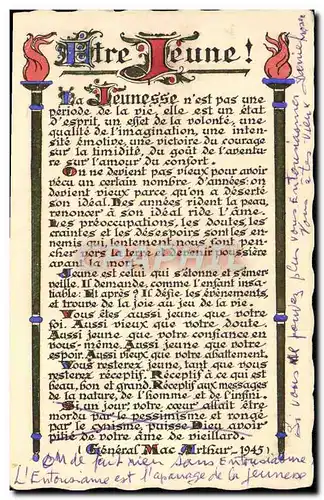 Etre Jeune !
La Jeunesse n'est pas une
période de la vie, elle est un état
d'esprit, un effet de la volonté, une
qualité de l'imagination, une inten-
sité émotive, une victoire du courage
sur la timidité, du goût de l'aventu-
re sur l'amour du confort.
On ne devient pas vieux pour avoir
vécu un certain nombre d'années: on
devient vieux parce qu'on a déserté
son idéal. Des années rident la peau,
renoncer à son idéal ride l'âme.
Les préoccupations, les doutes, les
craintes et les désespoirs sont les en-
nemis qui lentement nous font pen-
cher vers la terre et devenir poussière
avant la mort.
Jeune est celui qui s'étonne et s'émer
veille. Il demande, comme l'enfant insa-
tiable: Et après? Il défie les événements,
et trouve de la joie au jeu de la vie.
Vous êtes aussi jeune que votre
foi. Aussi vieux que votre doute.
Aussi jeune que votre confiance en
vous-même. Aussi jeune que votre
espoir. Aussi vieux que votre abattement.
Vous resterez jeune, tant que vous
resterez réceptif. Réceptif à ce qui est
beau, bon et grand. Réceptif aux messages
de la nature, de l'homme et de l'infini.
Si, un jour, votre cœur allait être
mordu par le pessimisme et rongé
par le cynisme, puisse Dieu avoir
pitié de votre âme de vieillard.
(Général Mac Arthur 1945)
On ne fait rien sans Entousiasme
L'Entousiasme est l'apanage de la Jeunesse
Si vous ne pouvez plus vous
vous êtes vieux